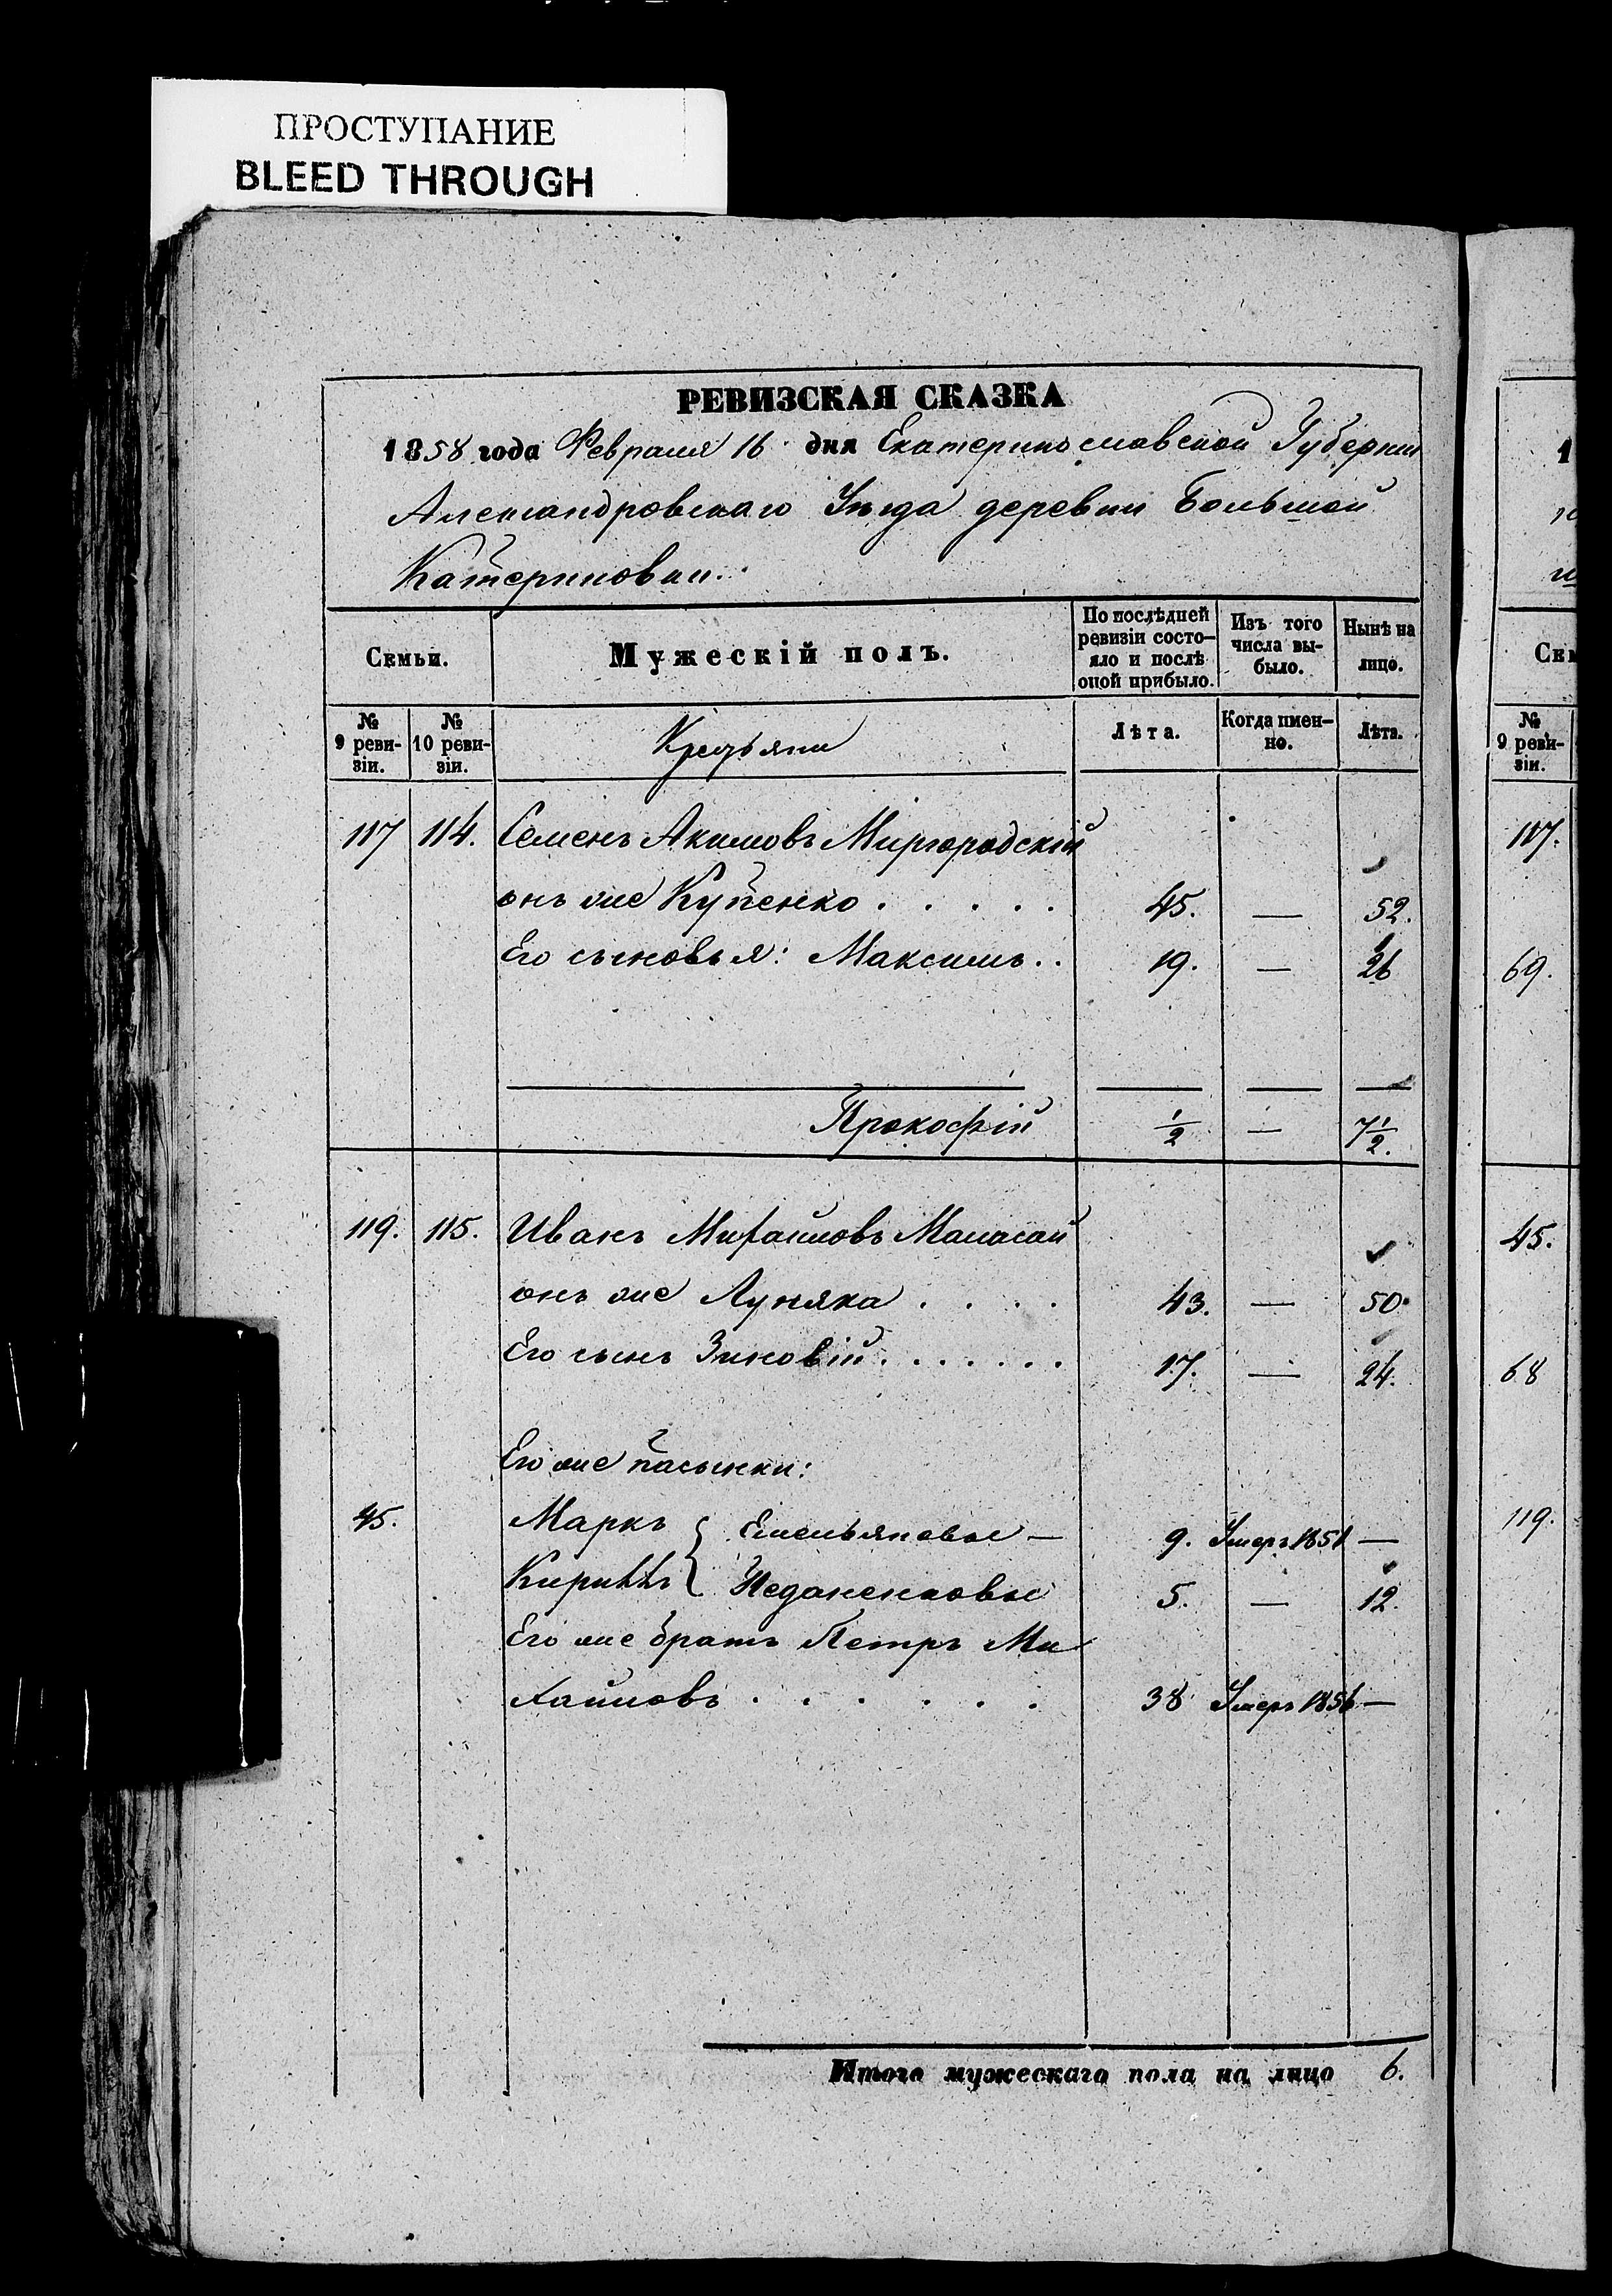 ПРОСТУПАНИЕ
BLEED THROUGH
РЕВИЗСКАЯ СКАЗКА
1858 года Февраля 16 дня Екатеринославской Губернии
Александровскаго Уѣзда деревни Большой
Катериновки.
Семьи.
Мужескій полъ.
По послѣдней
ревизіи состо-
яло и послѣ
оной прибыло.
Изъ того
числа вы-
было.
Нынѣ на
лицо.
№
9 реви-
зіи.
№
10 реви-
зіи.
Крестьяни
Лѣта.
Когда имен-
но.
Лѣта.
117 114. Семенъ Акимовъ Миргородскій
онъ же Купенко . . . . . 45. — 52.
Его сыновья: Максимъ . . 19. — 26
Прокофій ½ — 7½.
119. 115. Иванъ Михайловъ
онъ же Луняка . . . . 43. — 50.
Его сынъ Зиновій . . . . . . 17. — 24.
Его же пасынки:
45. Маркъ { Емельяновы — 9. Умеръ 1851 —
Кириллъ 5. — 12.
Его же братъ Петръ Ми
хайловъ . . . . . . 38 Умеръ 1856 —
Итого мужескаго пола на лицо 6.
1
Сем
№
9 реви-
зіи.
117.
69.
45.
68
119.